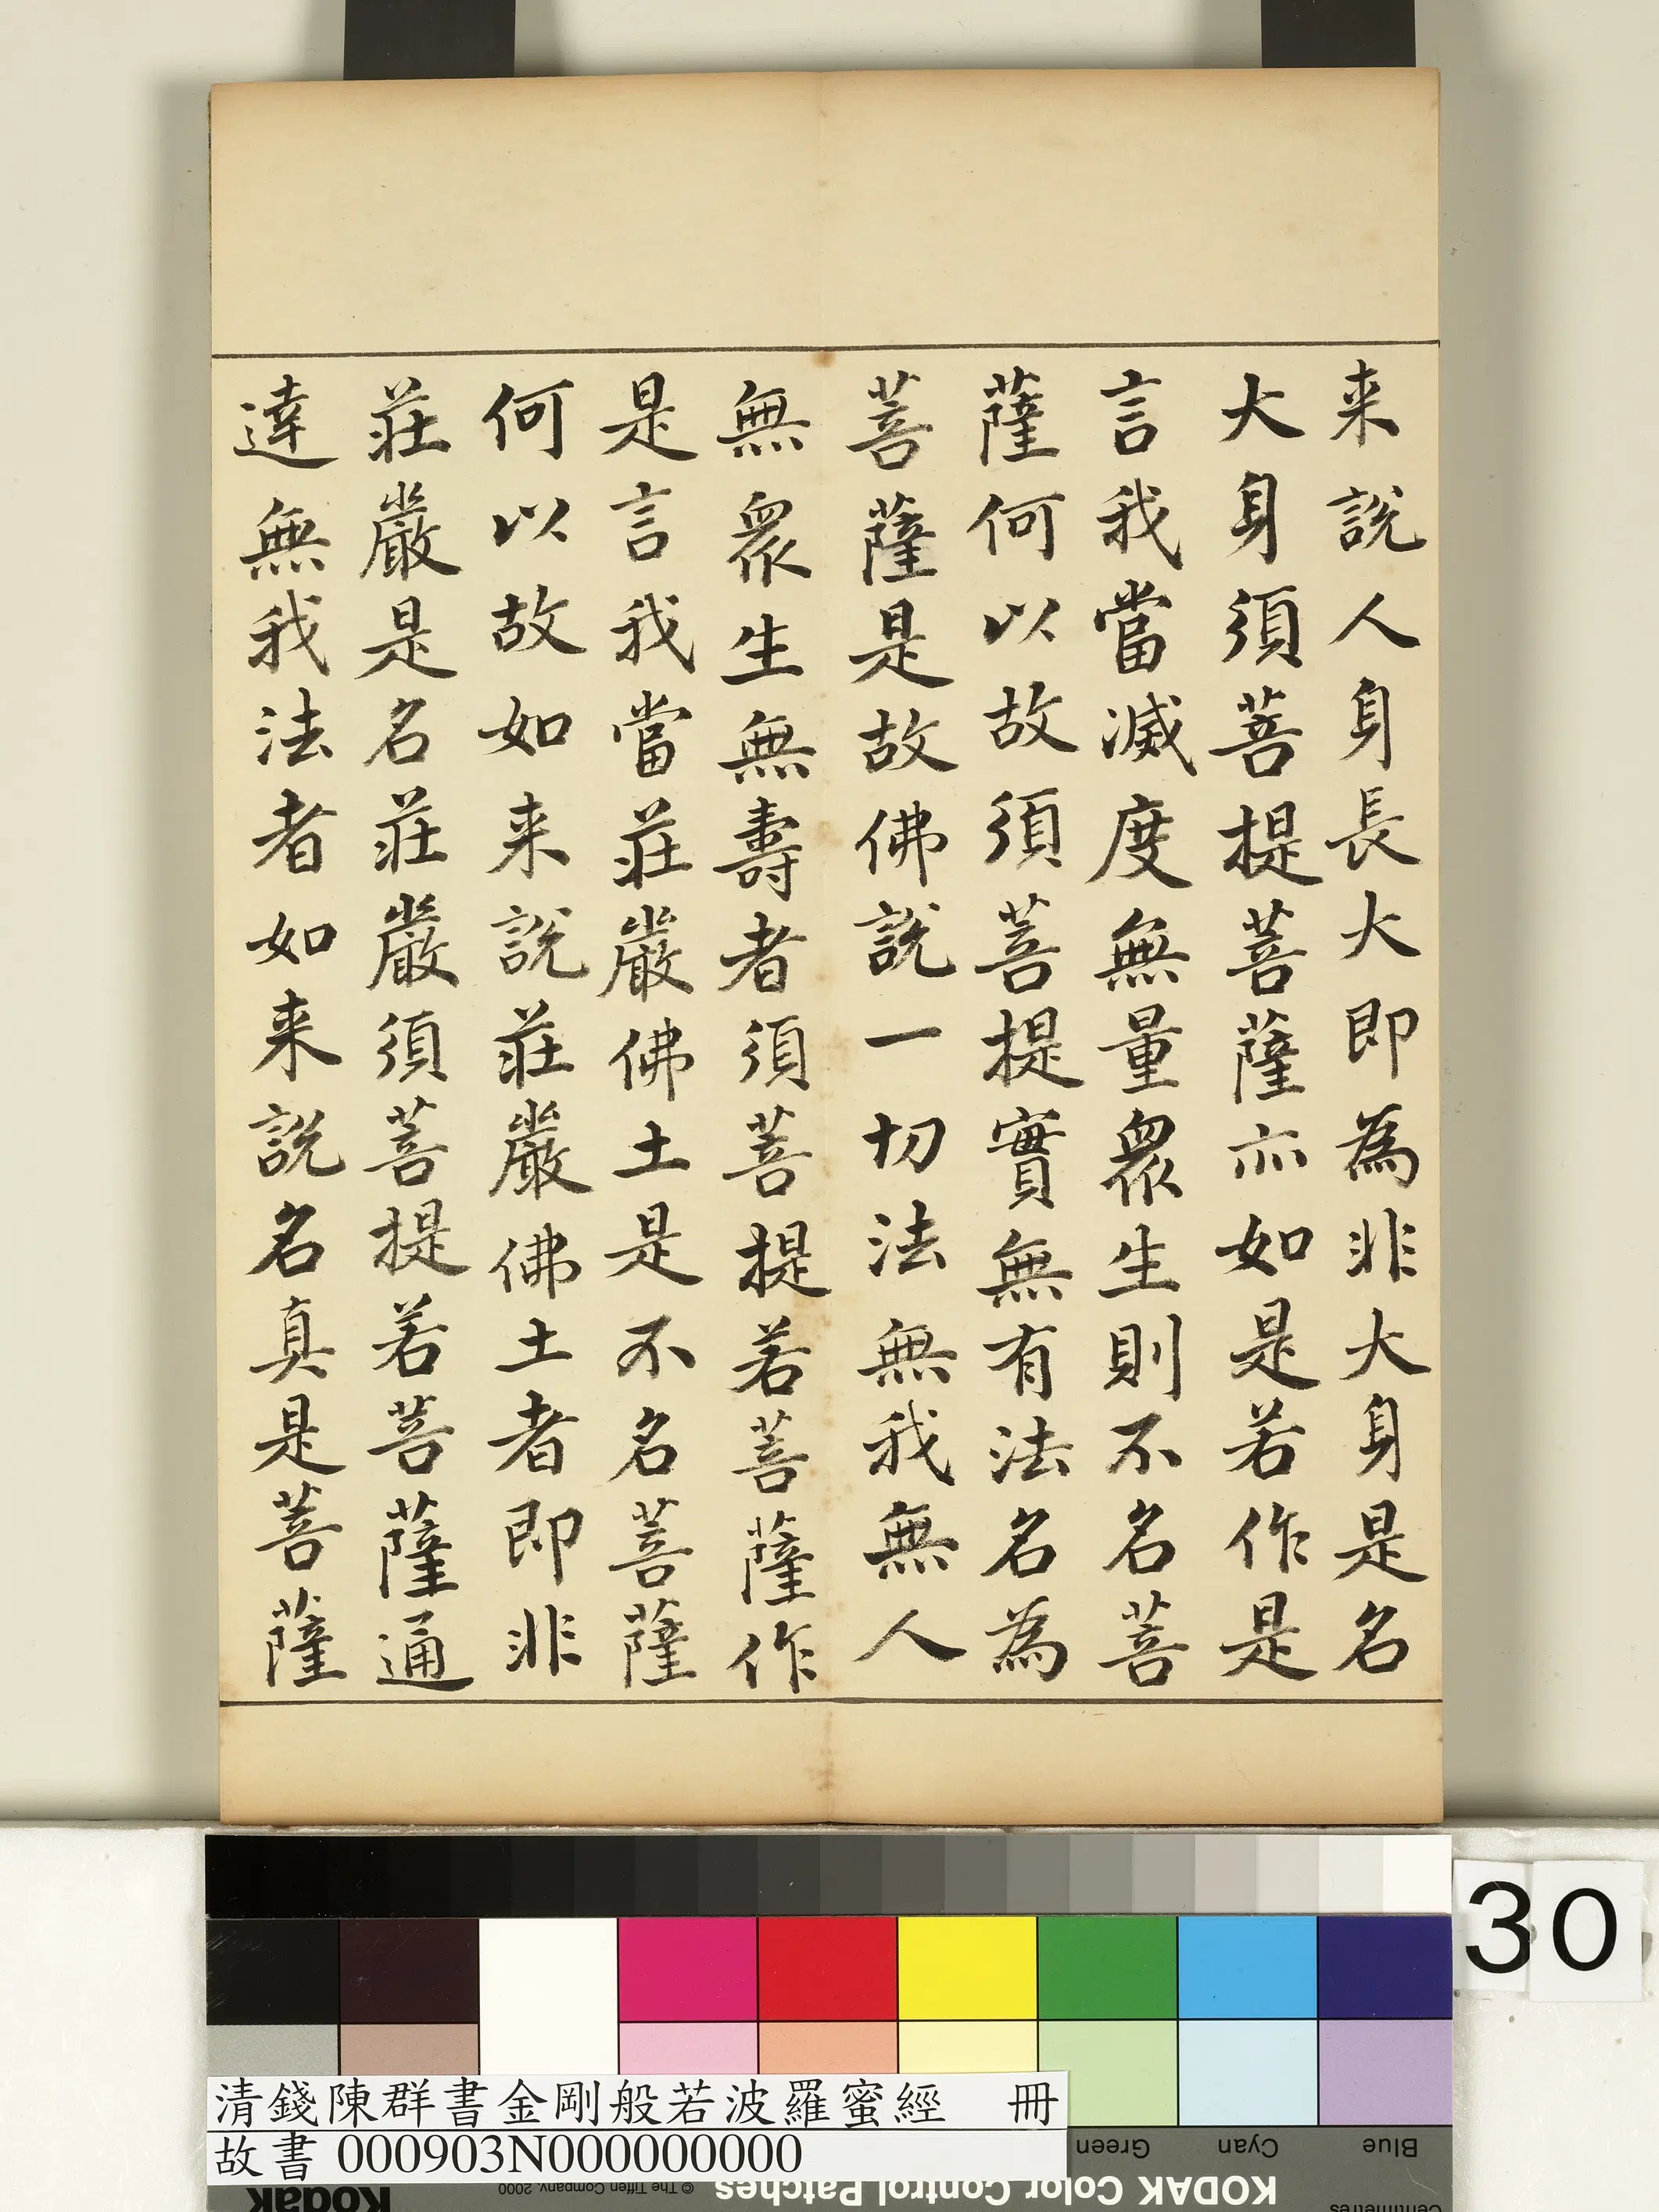 来說人身長大即為非大身是名
大身須菩提菩薩亦如是若作是
言我當滅度無量眾生則不名菩
薩何以故須菩提實無有法名為
菩薩是故佛說一切法無我無人
無眾生無壽者須菩提若菩薩作
是言我當莊嚴佛土是不名菩薩
何以故如来說莊嚴佛土者即非
莊嚴是名莊嚴須菩提若菩薩通
達無我法者如来說名真是菩薩
30
清錢陳群書金剛般若波羅蜜經 冊
故書 000903N000000000
Green Cyan Blue
Kodak © The Tiffen Company, 2000 KODAK Color Control Patches Centimetres